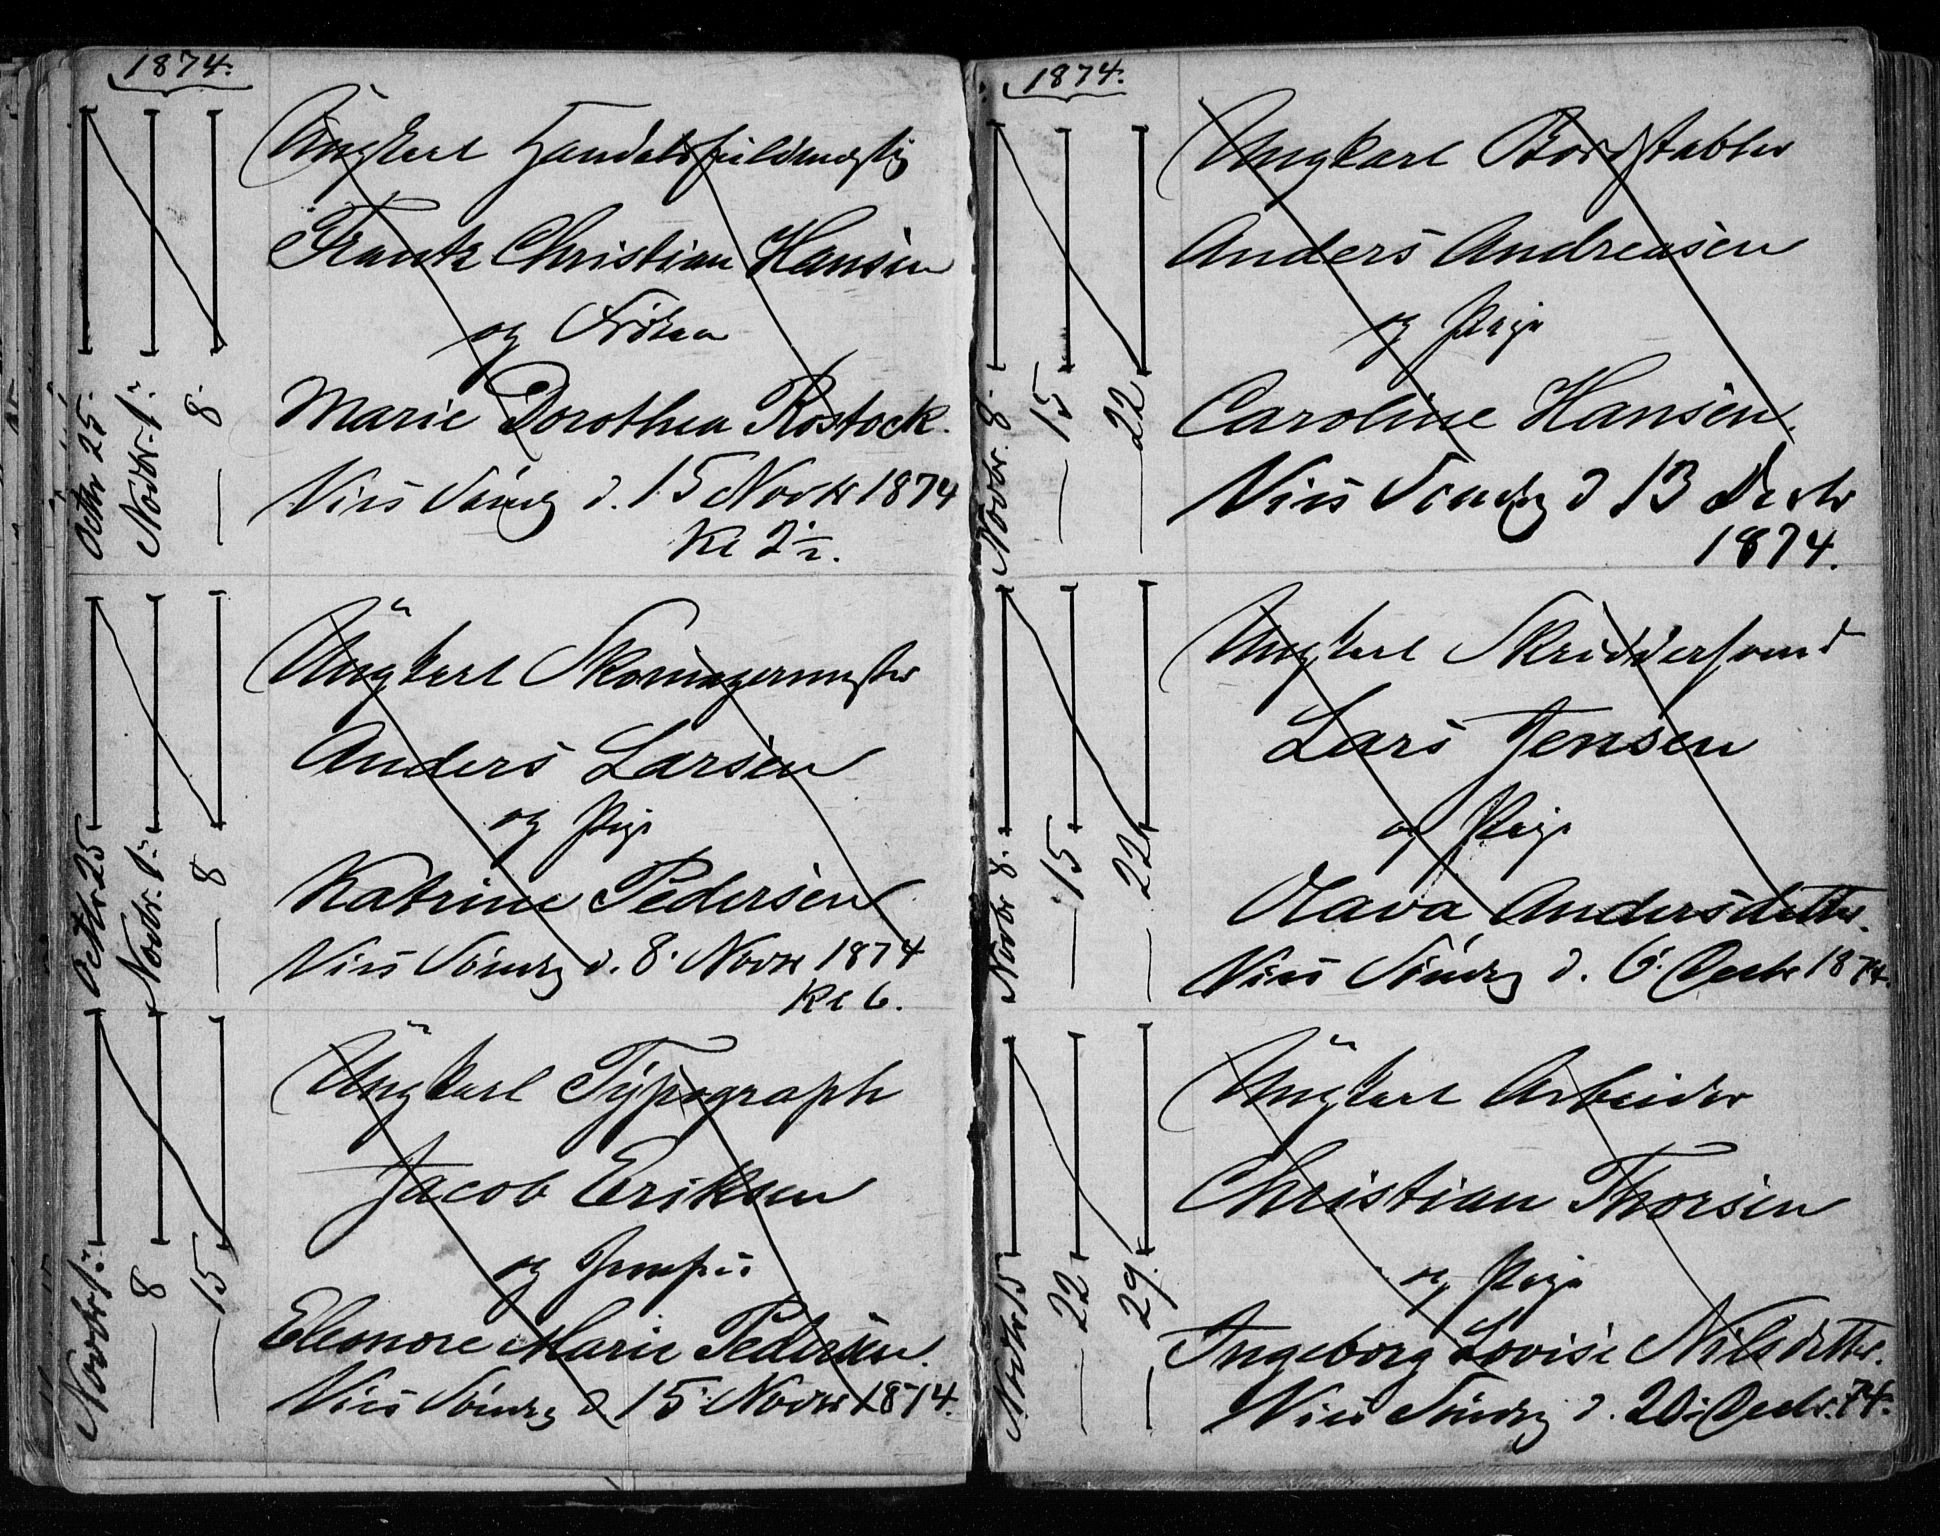 1874.
Octbr 25.
Novbr. 1.
— 8.
Ungkarl Handelsfuldmægtig
Frantz Christian Hansen
og Frøken
Marie Dorothea Rostock.
Vies Søndag d. 15 Novbr 1874
Kl 2½.
Octbr 25
Novbr. 1.
— 8
Ungkarl Skomagermester
Anders Larsen
og Pige
Katrine Pedersen
Vies Søndag d. 8. Novbr 1874
Kl 6.
Novbr 1.
— 8
— 15
Ungkarl Typograph
Jacob Eriksen
og Jomfru
Eleonore Marie Pedersen.
Vies Søndag d 15. Novbr 1874.
1874.
Novbr. 8.
— 15
— 22
Ungkarl Bordstabler
Anders Andreasen
og Pige
Caroline Hansen.
Vies Søndag d 13 Decbr
1874.
Novbr 8.
— 15
— 22
Ungkarl Skrædersvend
Lars Jensen
og Pige
Olava Andersdatter.
Vies Søndag d. 6. Decbr 1874.
Novbr 15
— 22
— 29.
Ungkarl Arbeider
Christian Thorsen
og Pige
Ingeborg Lovise Nilsdatter.
Vies Søndag d. 20. Decbr. 74.